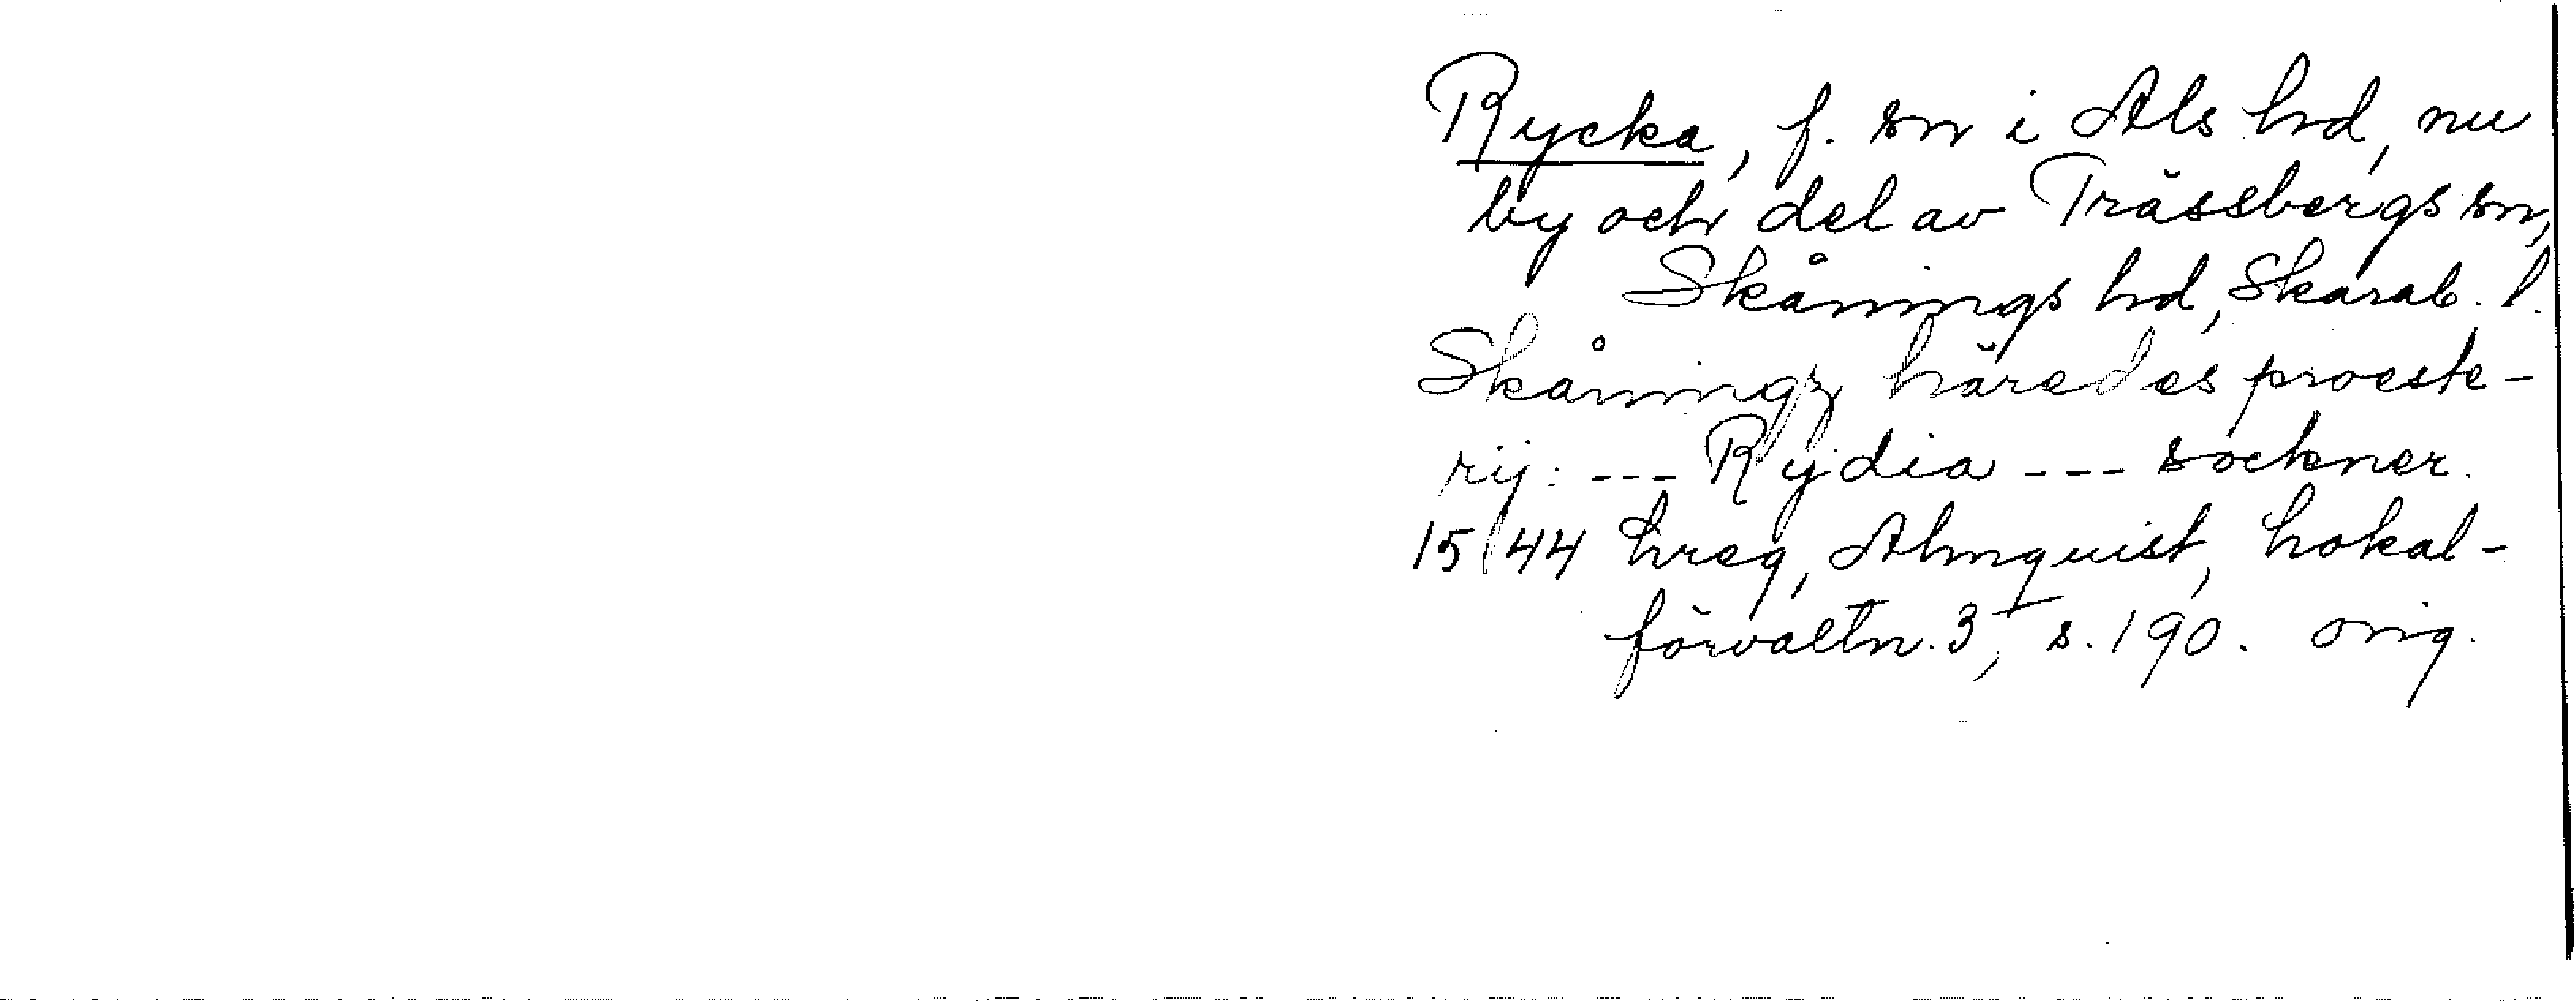 Rycka, f. sn i Als hd, nu
by och del av Trässbergs sn,
Skånings hd, Skarab. l.
Skåningz häredes proeste-
rij: --- Rydia --- sockner.
1544 hreg, Almquist, Lokal-
förvaltn. 3, s. 190. orig.